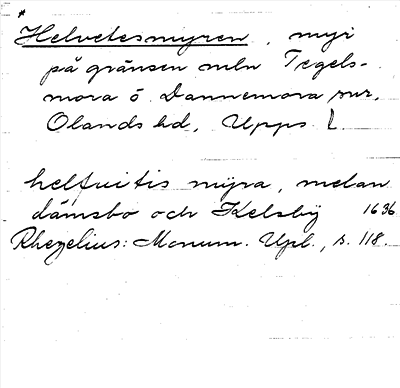 *
Helvetesmyren, myr
på gränsen mln Tegels-
mora o Dannemora snr,
Olands hd, Upps. L.
helfuitis myra, melan
dämsbo och Kelsby 1636
Rhezelius: Monum. Upl., s. 118.